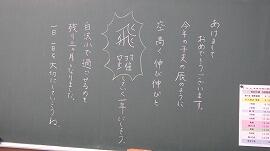 あけまして
おめでとうございます。
今年の干支の辰のように
空高く伸び伸びと
飛躍
していく一年にしよう。
白沢小で過ごせるのも
残り三ヶ月となりました。
一日一日を大切にしていこうね。